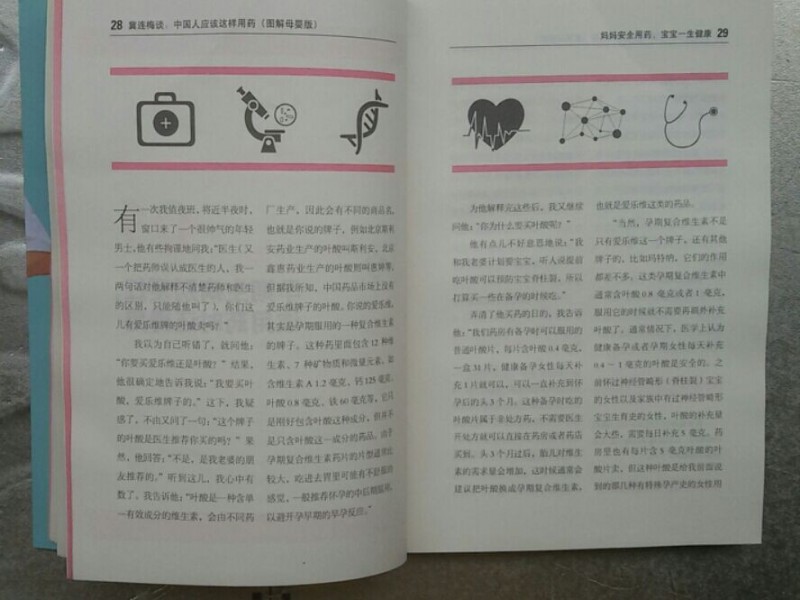 28 冀连梅谈：中国人应该这样用药（图解母婴版）
有一次我值夜班，将近半夜时，
窗口来了一个很帅气的年轻
男士，他有些拘谨地问我：“医生（又
一个把药师误认成医生的人，我一
两句话对他解释不清楚药师和医生
的区别，只能随他叫了），你们这
儿有爱乐维牌的叶酸卖吗？”
我以为自己听错了，就问他：
“你要买爱乐维还是叶酸？”结果，
他很确定地告诉我说：“我要买叶
酸，爱乐维牌子的。”这下，我疑
惑了，不由又问了一句：“这个牌子
的叶酸是医生推荐你买的吗？”果
然，他回答：“不是，是我老婆的朋
友推荐的。”听到这儿，我心中有
数了。我告诉他：“叶酸是一种含单
一有效成分的维生素，会由不同药
厂生产，因此会有不同的商品名，
也就是你说的牌子，例如北京斯利
安药业生产的叶酸叫斯利安，北京
鑫惠药业生产的叶酸则叫惠婷等。
但据我所知，中国药品市场上没有
爱乐维牌子的叶酸。你说的爱乐维，
其实是孕期服用的一种复合维生素
的牌子。这种药里面包含 12 种维
生素、7 种矿物质和微量元素，如
含维生素 A 1.2 毫克、钙 125 毫克、
叶酸 0.8 毫克、铁 60 毫克等，它只
是刚好包含叶酸这种成分，但并不
是只含叶酸这一成分的药品。由于
孕期复合维生素药片的片型通常比
较大，吃进去胃里可能有不舒服的
感觉，一般推荐怀孕的中后期服用，
以避开孕早期的早孕反应。”
妈妈安全用药，宝宝一生健康 29
为他解释完这些后，我又继续
问他：“你为什么要买叶酸呢？”
他有点儿不好意思地说：“我
和我老婆计划要宝宝，听人说提前
吃叶酸可以预防宝宝脊柱裂，所以
打算买一些在备孕的时候吃。”
弄清了他买药的目的，我告诉
他：“我们药房有备孕时可以服用的
普通叶酸片，每片含叶酸 0.4 毫克，
一盒 31 片，健康备孕女性每天补
充 1 片就可以，可以一直补充到怀
孕后的头 3 个月。这种备孕时吃的
叶酸片属于非处方药，不需要医生
开处方就可以直接在药房或者药店
买到。头 3 个月过后，胎儿对维生
素的需求量会增加，这时候通常会
建议把叶酸换成孕期复合维生素，
也就是爱乐维这类的药品。
“当然，孕期复合维生素不是
只有爱乐维这一个牌子，还有其他
牌子的，比如玛特纳，它们的作用
都差不多。这类孕期复合维生素中
通常含叶酸 0.8 毫克或者 1 毫克，
服用它的时候就不需要再额外补充
叶酸了。通常情况下，医学上认为
健康备孕或者孕期女性每天补充
0.4 ～ 1 毫克的叶酸是安全的。之
前怀过神经管畸形（脊柱裂）宝宝
的女性以及家族中有过神经管畸形
宝宝生育史的女性，叶酸的补充量
会大些，需要每日补充 5 毫克。药
房里也有每片含 5 毫克叶酸的叶
酸片卖，但这种叶酸是给我前面说
到的那几种有特殊孕产史的女性用